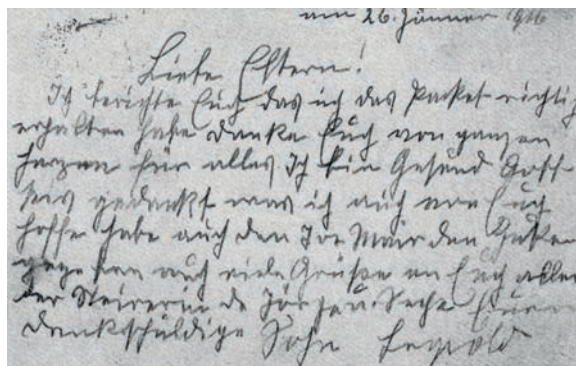 am 26. Jänner 1916
Liebe Eltern!
Ich berichte Euch das ich das Packet richtig
erhalten habe danke Euch von ganzen
Herzen für alles Ich bin Gesund Gott
seis gedankt was ich auch von Euch
hoffe habe auch den Mair den
gegeben auch viele Grüße an Euch allen
der Steirerin Euer
dankschuldige Sohn Leopold